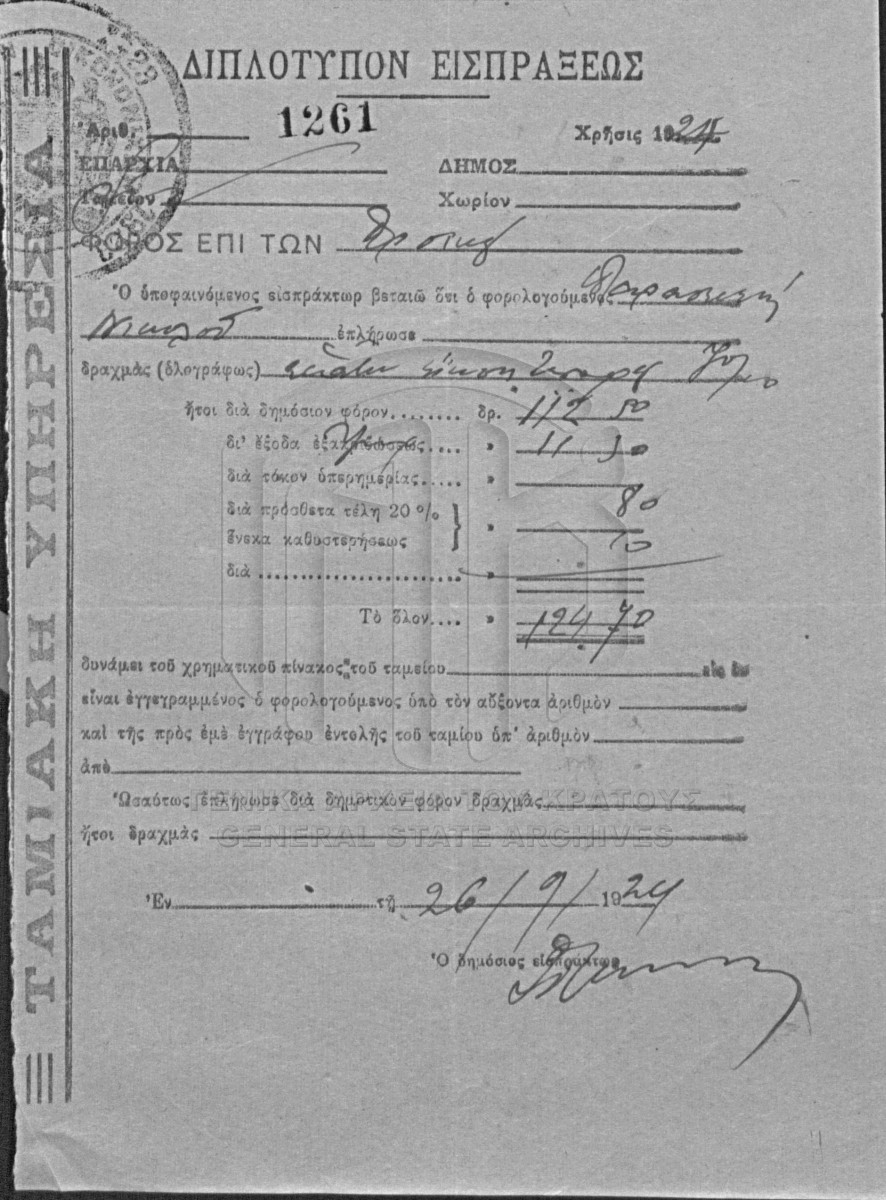 ΤΑΜΙΑΚΗ ΥΠΗΡΕΣΙΑ
ΔΙΠΛΟΤΥΠΟΝ ΕΙΣΠΡΑΞΕΩΣ
Ἀριθ. 1261
Χρῆσις 1924
ΕΠΑΡΧΙΑ
ΔΗΜΟΣ
Ταμεῖον
Χωρίον
ΦΟΡΟΣ ΕΠΙ ΤΩΝ
Ὁ ὑποφαινόμενος εἰσπράκτωρ βεταιῶ ὅτι ὁ φορολογούμενος Παρασκευή
ἐπλήρωσε
δραχμὰς (ὁλογράφως) ἑκατὸν εἴκοσι
ἤτοι διὰ δημόσιον φόρον........ δρ. 112 50
δι' ἔξοδα ἐξακριβώσεως.... » 11 30
διὰ τόκον ὑπερημερίας..... »
διὰ πρόσθετα τέλη 20 % } » 80
ἕνεκα καθυστερήσεως 10
διὰ ........................ »
Τὸ ὅλον.... » 124 70
δυνάμει τοῦ χρηματικοῦ πίνακος τοῦ ταμείου εἰς ὃν
εἶναι ἐγγεγραμμένος ὁ φορολογούμενος ὑπὸ τὸν αὔξοντα ἀριθμὸν
καὶ τῆς πρὸς ἐμὲ ἐγγράφου ἐντολῆς τοῦ ταμίου ὑπ' ἀριθμὸν
ἀπὸ
Ὡσαύτως ἐπλήρωσε διὰ δημοτικὸν φόρον δραχμὰς
ΓΕΝΙΚΑ ΑΡΧΕΙΑ ΤΟΥ ΚΡΑΤΟΥΣ
ἤτοι δραχμὰς
GENERAL STATE ARCHIVES
Ἐν τῇ 26/9/1924
Ὁ δημόσιος εἰσπράκτωρ